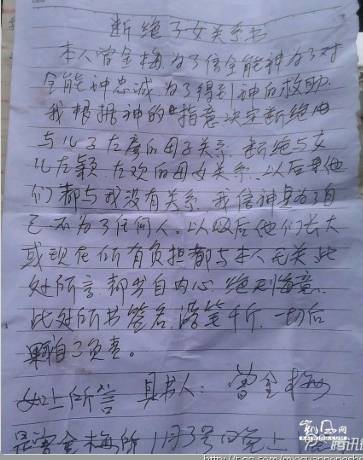 断绝子女关系书
本人曾金梅为了信全能神为了对
全能神忠诚为了得到神的救助
我根据神的"指意决定断绝由
与儿子左彦的母子关系.断绝与女
儿左颖左欢的母女关系.以后早他
们都与我没有关系我信神是为了自
己不为了任何人.以后他们长大
或现在所有负担都与本人无关此
处所言都出自内心绝不悔意.
此处所书签名落笔千斤.一切后
果自己负责.
以上所言 具书人: 曾金梅
是曾金梅所 11月3号晚上
腾讯